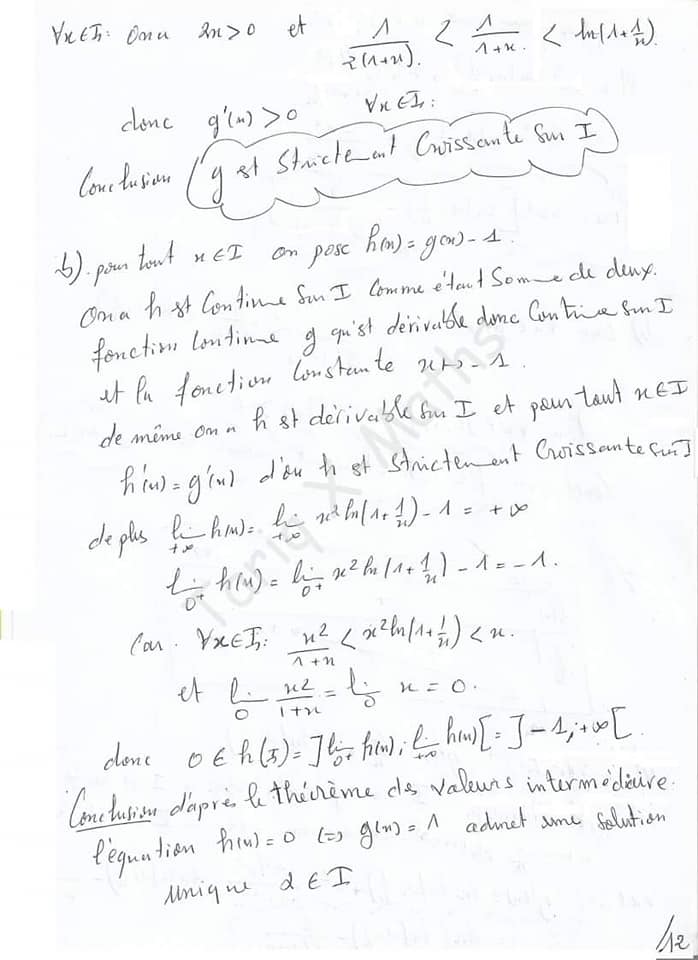 ∀x∈I: On a 2x>0 et 1/2(1+x) < 1/1+x < ln(1+1/x).
donc g'(x) >0 ∀x∈I:
Conclusion (g est strictement croissante sur I
b). pour tout x∈I on pose h(x) = g(x) - 1.
On a h est continue sur I comme étant Somme de deux.
fonction continue g qu'st dérivable donc Continue sur I
et la fonction constante x↦-1.
de même on a h st dérivable sur I et pour tout x∈I
h'(x) = g'(x) d'où h st strictement Croissante sur I
de plus lim +∞ h(x) = lim +∞ x² ln(1+1/x) - 1 = +∞
lim 0+ h(x) = lim 0+ x² ln(1+1/x) - 1 = -1.
Car. ∀x∈I: x²/1+x < x² ln(1+1/x) < x.
et lim 0 x²/1+x = lim 0 x = 0.
donc 0 ∈ h(I) = ]lim 0+ h(x); lim +∞ h(x)[ = ]-1; +∞[
Conclusion d'après le théorème des valeurs intermédiaire.
l'équation h(x) = 0 (=) g(x) = 1 admet une solution
unique α ∈ I
/12
Tariq X Maths